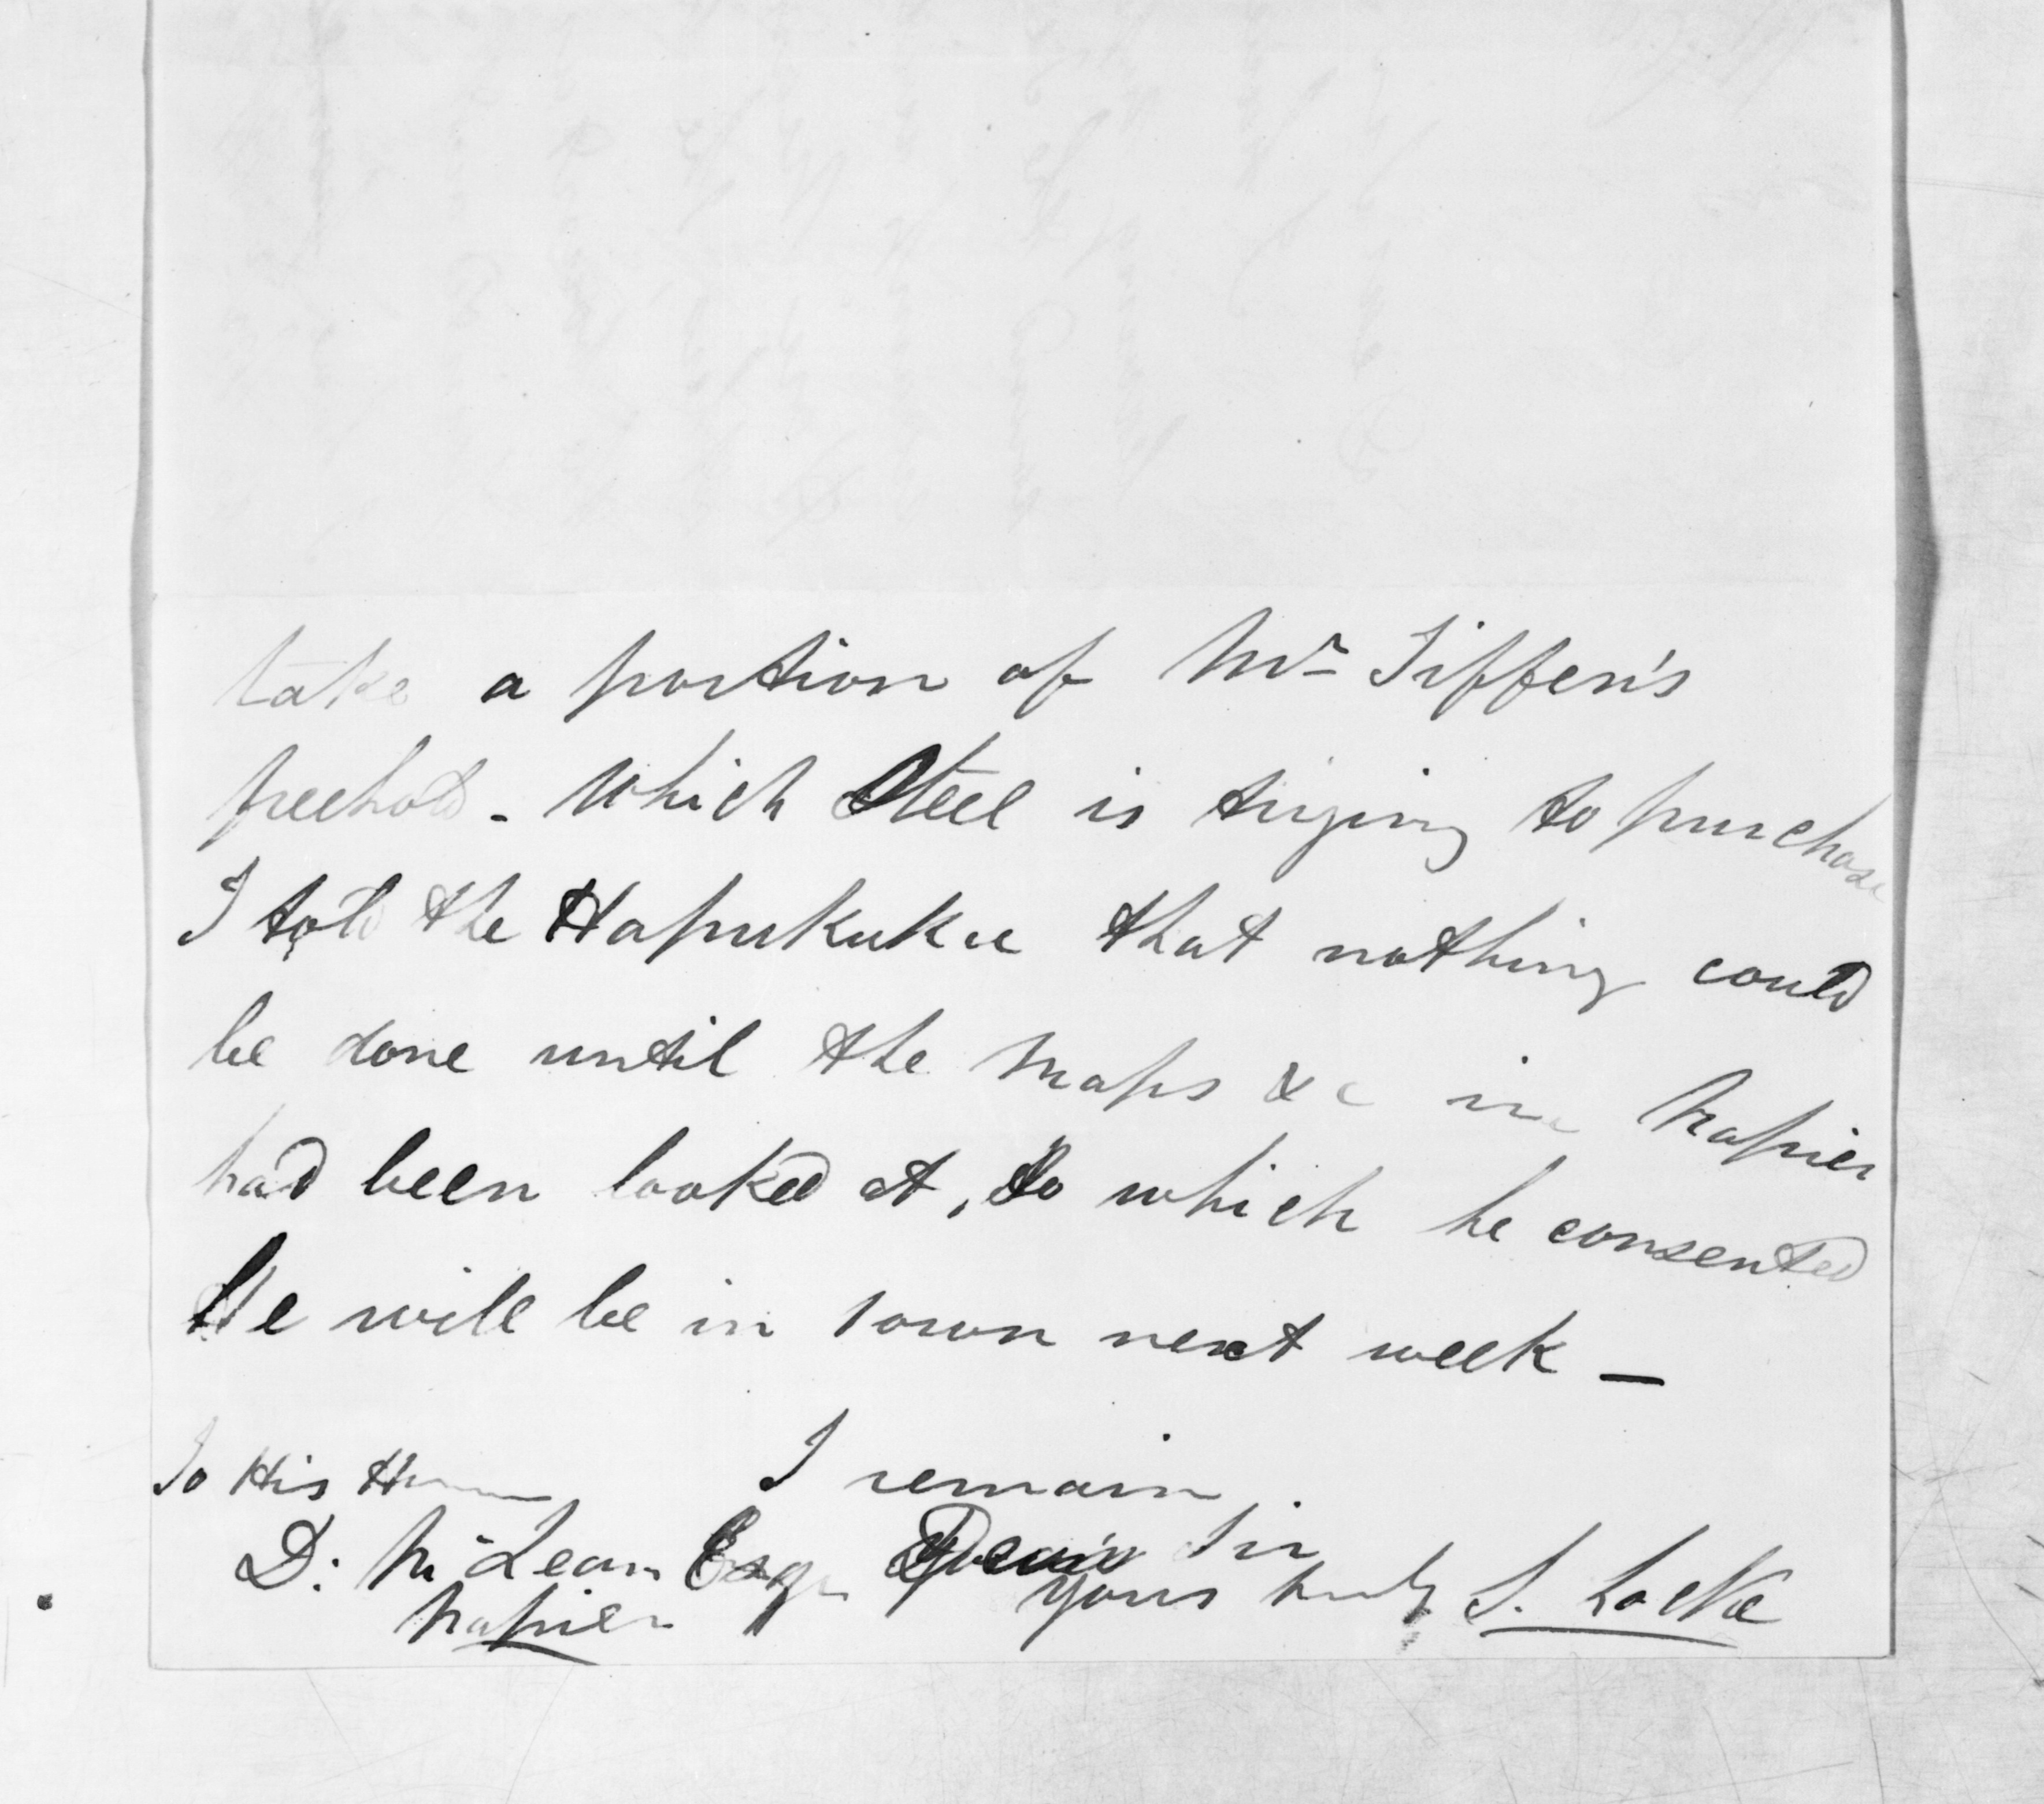 take a portion of Mr Tiffen's
freehold - which Steel is trying to purchase
I told the Hapukuku that nothing could
be done until the maps &c in Napier
had been looked at, to which he consented
He will be in town next week -
I remain
To His Honor
Dear Sir
D. McLean Esqr
yours truly S. Locke
Napier